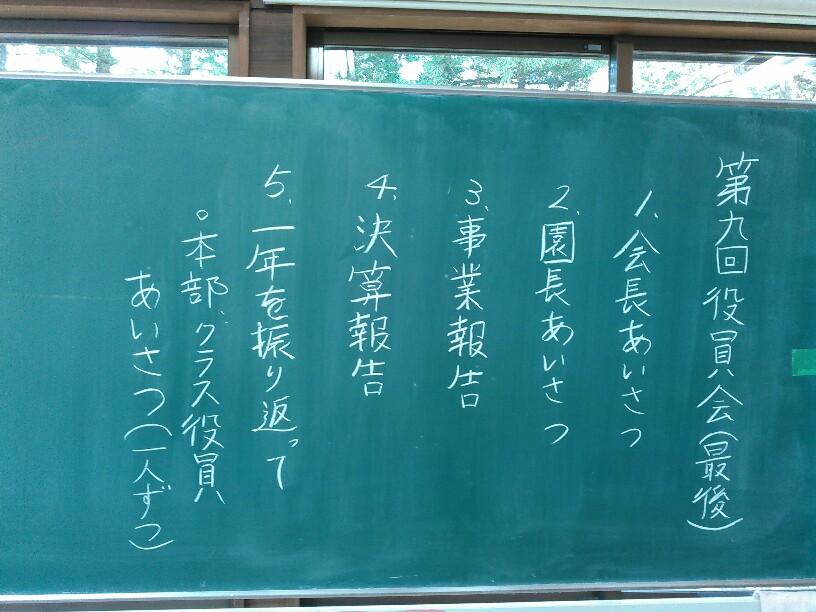 第九回役員会(最後)
1、会長あいさつ
2、園長あいさつ
3、事業報告
4、決算報告
5、一年を振り返って
。本部、クラス役員
あいさつ(一人ずつ)